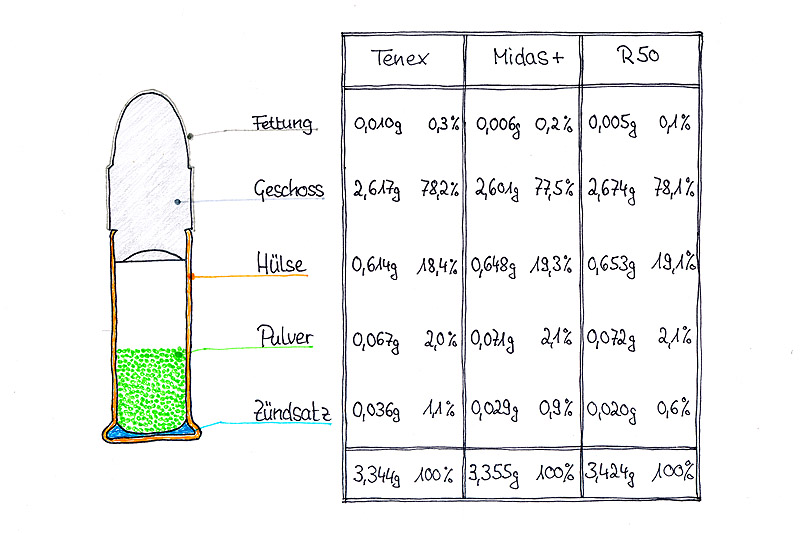 Tenex Midas+ R50
Fettung 0,010g 0,3% 0,006g 0,2% 0,005g 0,1%
Geschoss 2,617g 78,2% 2,601g 77,5% 2,674g 78,1%
Hülse 0,614g 18,4% 0,648g 19,3% 0,653g 19,1%
Pulver 0,067g 2,0% 0,071g 2,1% 0,072g 2,1%
Zündsatz 0,036g 1,1% 0,029g 0,9% 0,020g 0,6%
3,344g 100% 3,355g 100% 3,424g 100%